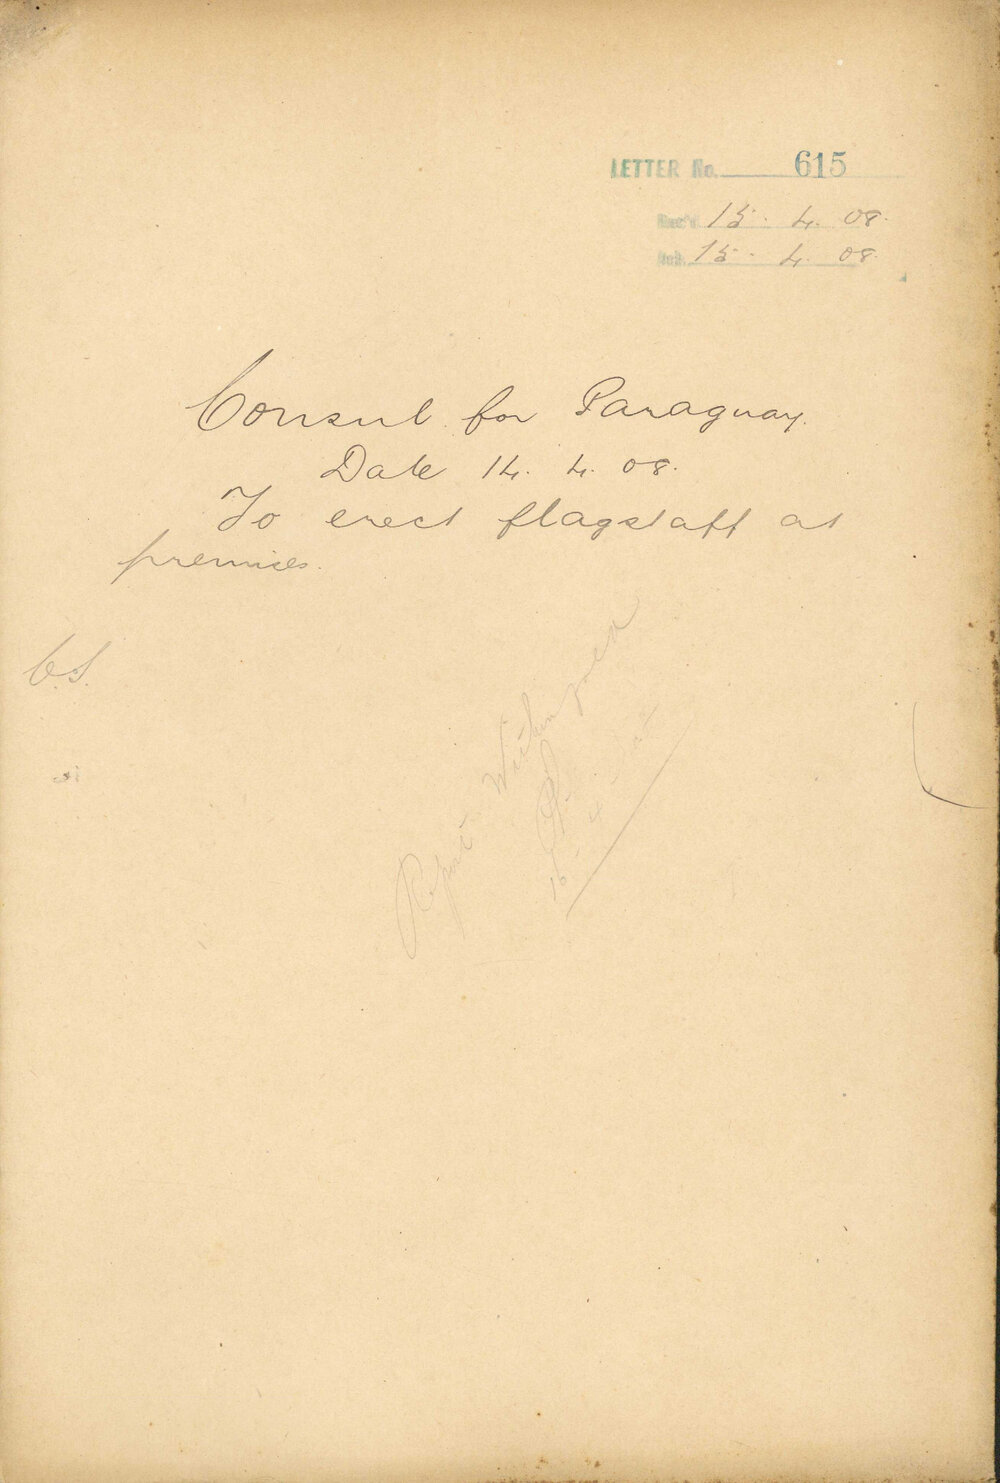 LETTER No. 615
Rec'd 15. 4. 08.
15. 4. 08.
Consul for Paraguay.
Date 14. 4. 08.
To erect flagstaff at
premises.
C.S.
Report